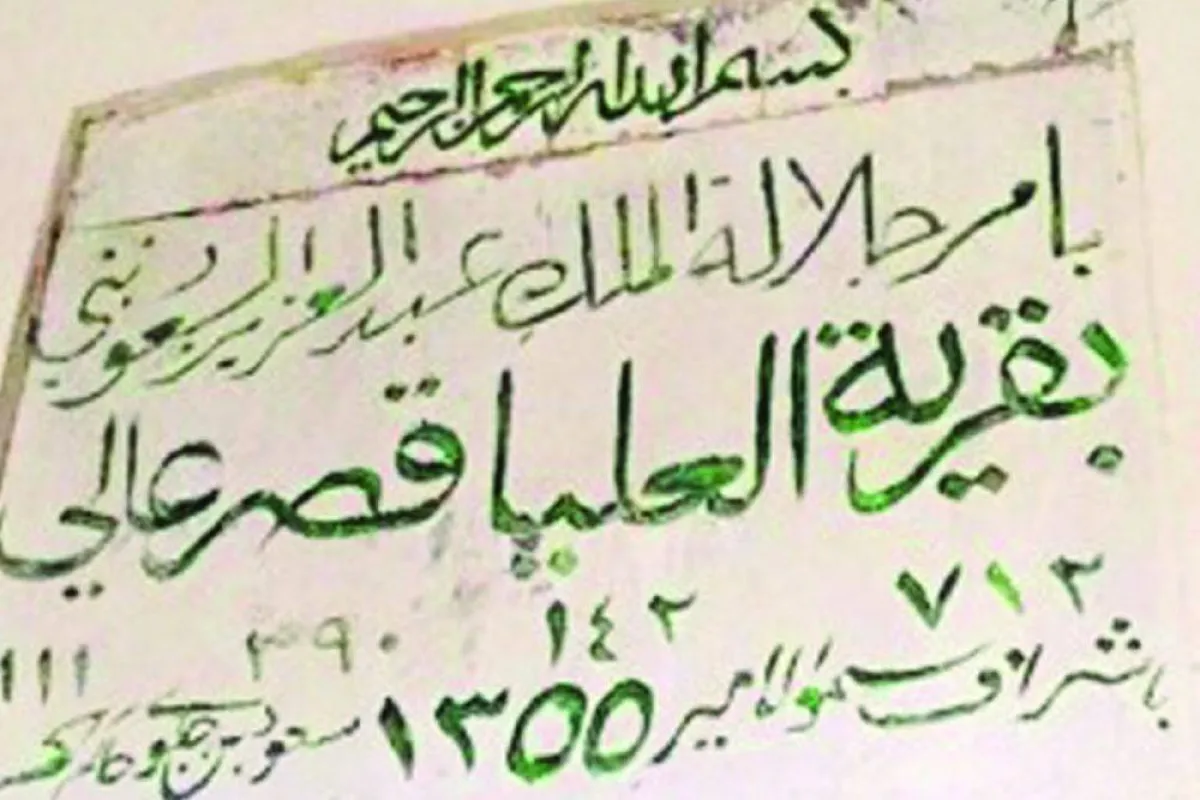 بسم الله الرحمن الرحيم
بامر جلالة الملك عبد العزيز السعود بنى
بقرية العليا قصر عالي
٧١٢ ١٤٢ ٣٩٠ ١١١
باشراف سمو الامير ١٣٥٥ سعود بن جلوي